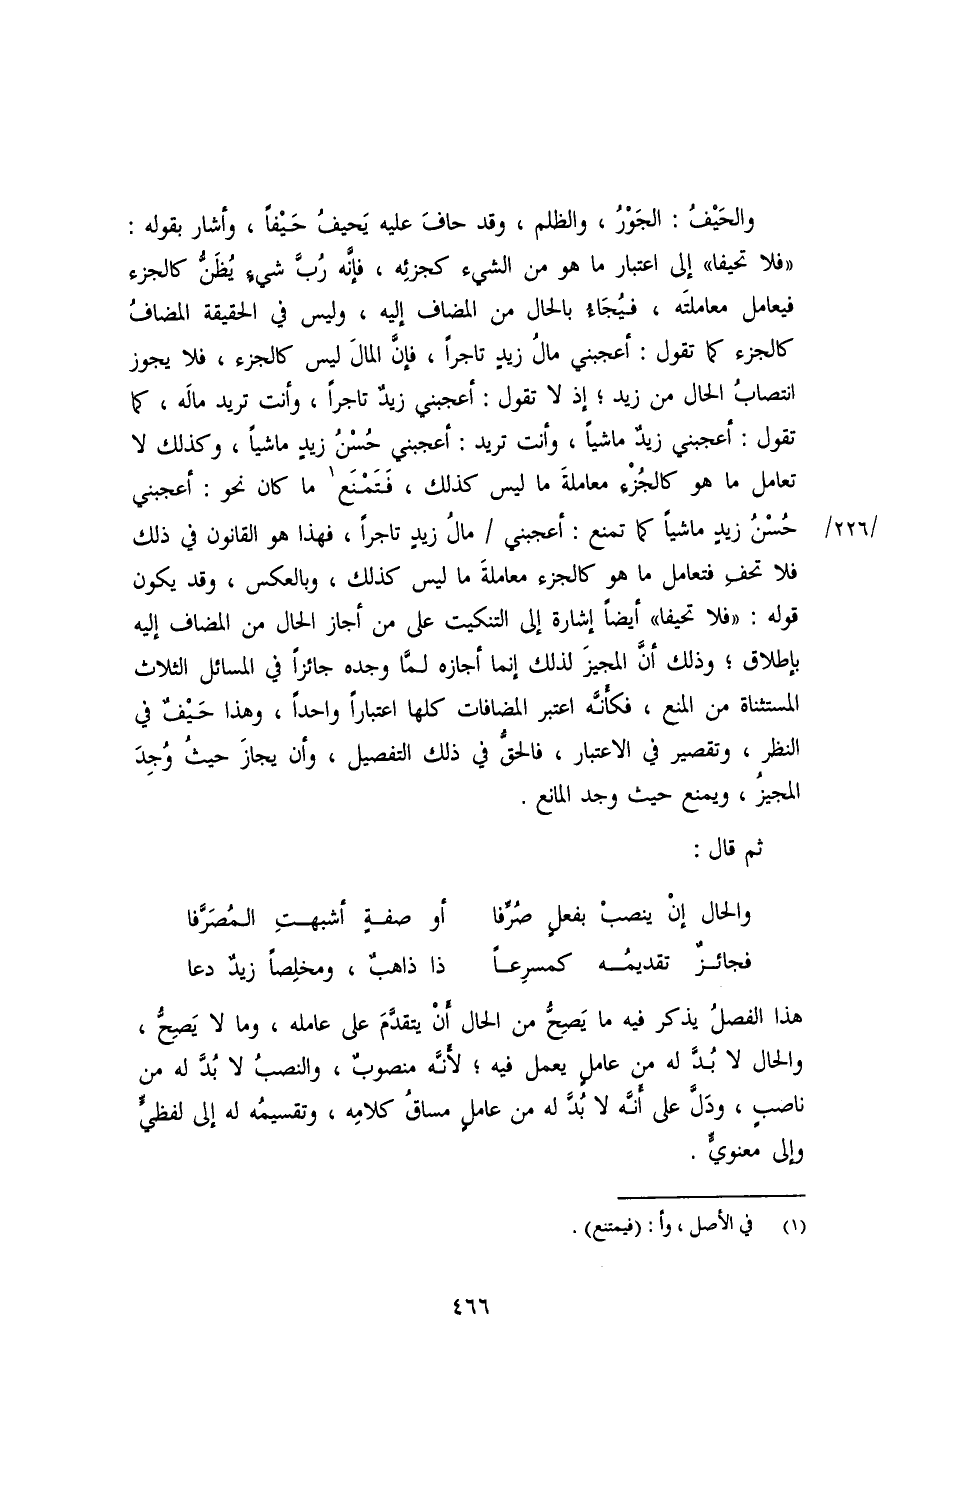 والحَيْفُ : الجَوْرُ ، والظلم ، وقد حافَ عليه يَحيفُ حَيْفاً ، وأشار بقوله :
«فلا تحيفا» إلى اعتبار ما هو من الشيء كجزئِه ، فإنَّه رُبَّ شيءٍ يُظَنُّ كالجزء
فيعامل معاملتَه ، فيُجَاءُ بالحال من المضاف إليه ، وليس في الحقيقة المضافُ
كالجزء كما تقول : أعجبني مالُ زيدٍ تاجراً ، فإنَّ المالَ ليس كالجزء ، فلا يجوز
انتصابُ الحال من زيد ؛ إذ لا تقول : أعجبني زيدٌ تاجراً ، وأنت تريد مالَه ، كما
تقول : أعجبني زيدٌ ماشياً ، وأنت تريد : أعجبني حُسْنُ زيدٍ ماشياً ، وكذلك لا
تعامل ما هو كالجُزْءِ معاملةَ ما ليس كذلك ، فَتَمْنَع ١ ما كان نحو : أعجبني
حُسْنُ زيدٍ ماشياً كما تمنع : أعجبني / مالُ زيدٍ تاجراً ، فهذا هو القانون في ذلك /٢٢٦/
فلا تحفِ فتعامل ما هو كالجزء معاملةَ ما ليس كذلك ، وبالعكس ، وقد يكون
قوله : «فلا تحيفا» أيضاً إشارة إلى التنكيت على من أجاز الحال من المضاف إليه
بإطلاق ؛ وذلك أنَّ المجيزَ لذلك إنما أجازه لـمَّا وجده جائزاً في المسائل الثلاث
المستثناة من المنع ، فكأنَّه اعتبر المضافات كلها اعتباراً واحداً ، وهذا حَيْفٌ في
النظر ، وتقصير في الاعتبار ، فالحقُّ في ذلك التفصيل ، وأن يجازَ حيثُ وُجِدَ
المجيزُ ، ويمنع حيث وجد المانع .
ثم قال :
والحال إنْ ينصبْ بفعلٍ صُرِّفا أو صفـةٍ أشبهـتِ الـمُصَرَّفا
فجائـزٌ تقديمُـه كمسرِعـاً ذا ذاهبٌ ، ومخلِصاً زيدٌ دعا
هذا الفصلُ يذكر فيه ما يَصِحُّ من الحال أَنْ يتقدَّمَ على عامله ، وما لا يَصِحُّ ،
والحال لا بُدَّ له من عاملٍ يعمل فيه ؛ لأَنَّه منصوبٌ ، والنصبُ لا بُدَّ له من
ناصبٍ ، ودَلَّ على أَنَّه لا بُدَّ له من عاملٍ مساقُ كلامِه ، وتقسيمُه له إلى لفظيٍّ
وإلى معنويٍّ .
(١) في الأصل ، وأ : (فيمتنع) .
٤٦٦